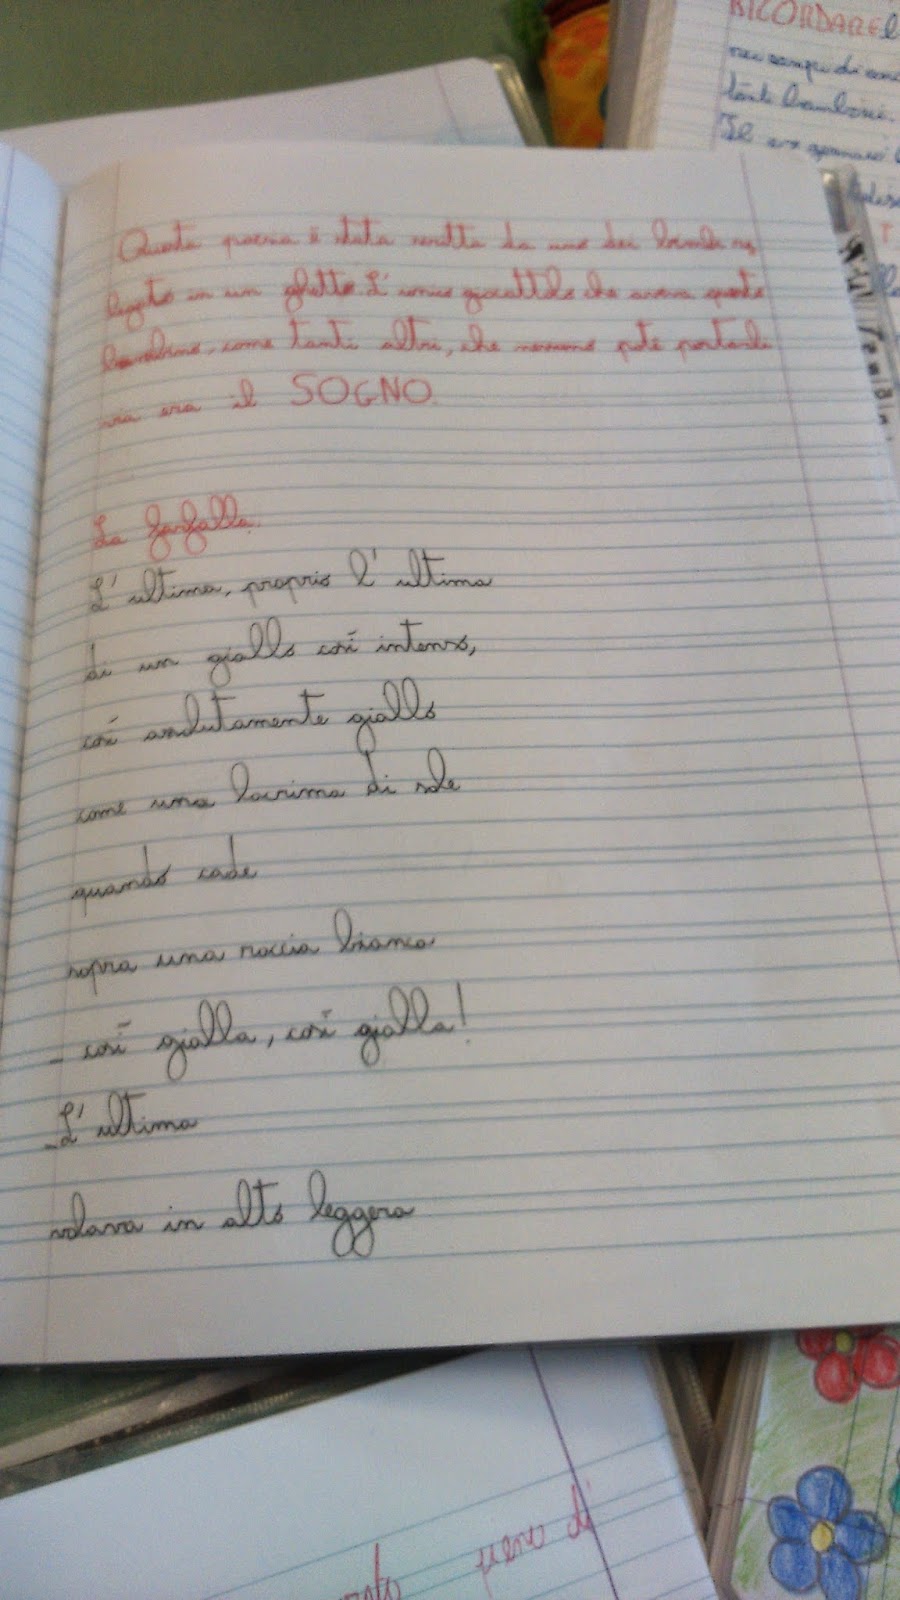 Questa poesia è stata scritta da uno dei bimbi re
legato in un ghetto. L'unico giocattolo che aveva questo
bambino, come tanti altri, che nessuno poté portarli
via era il SOGNO.
La farfalla.
L'ultima, proprio l'ultima
di un giallo così intenso,
così assolutamente giallo
come una lacrima di sole
quando cade
sopra una roccia bianca
- così gialla, così gialla!
L'ultima
volava in alto leggera
RICORDARE
tanti bambini.